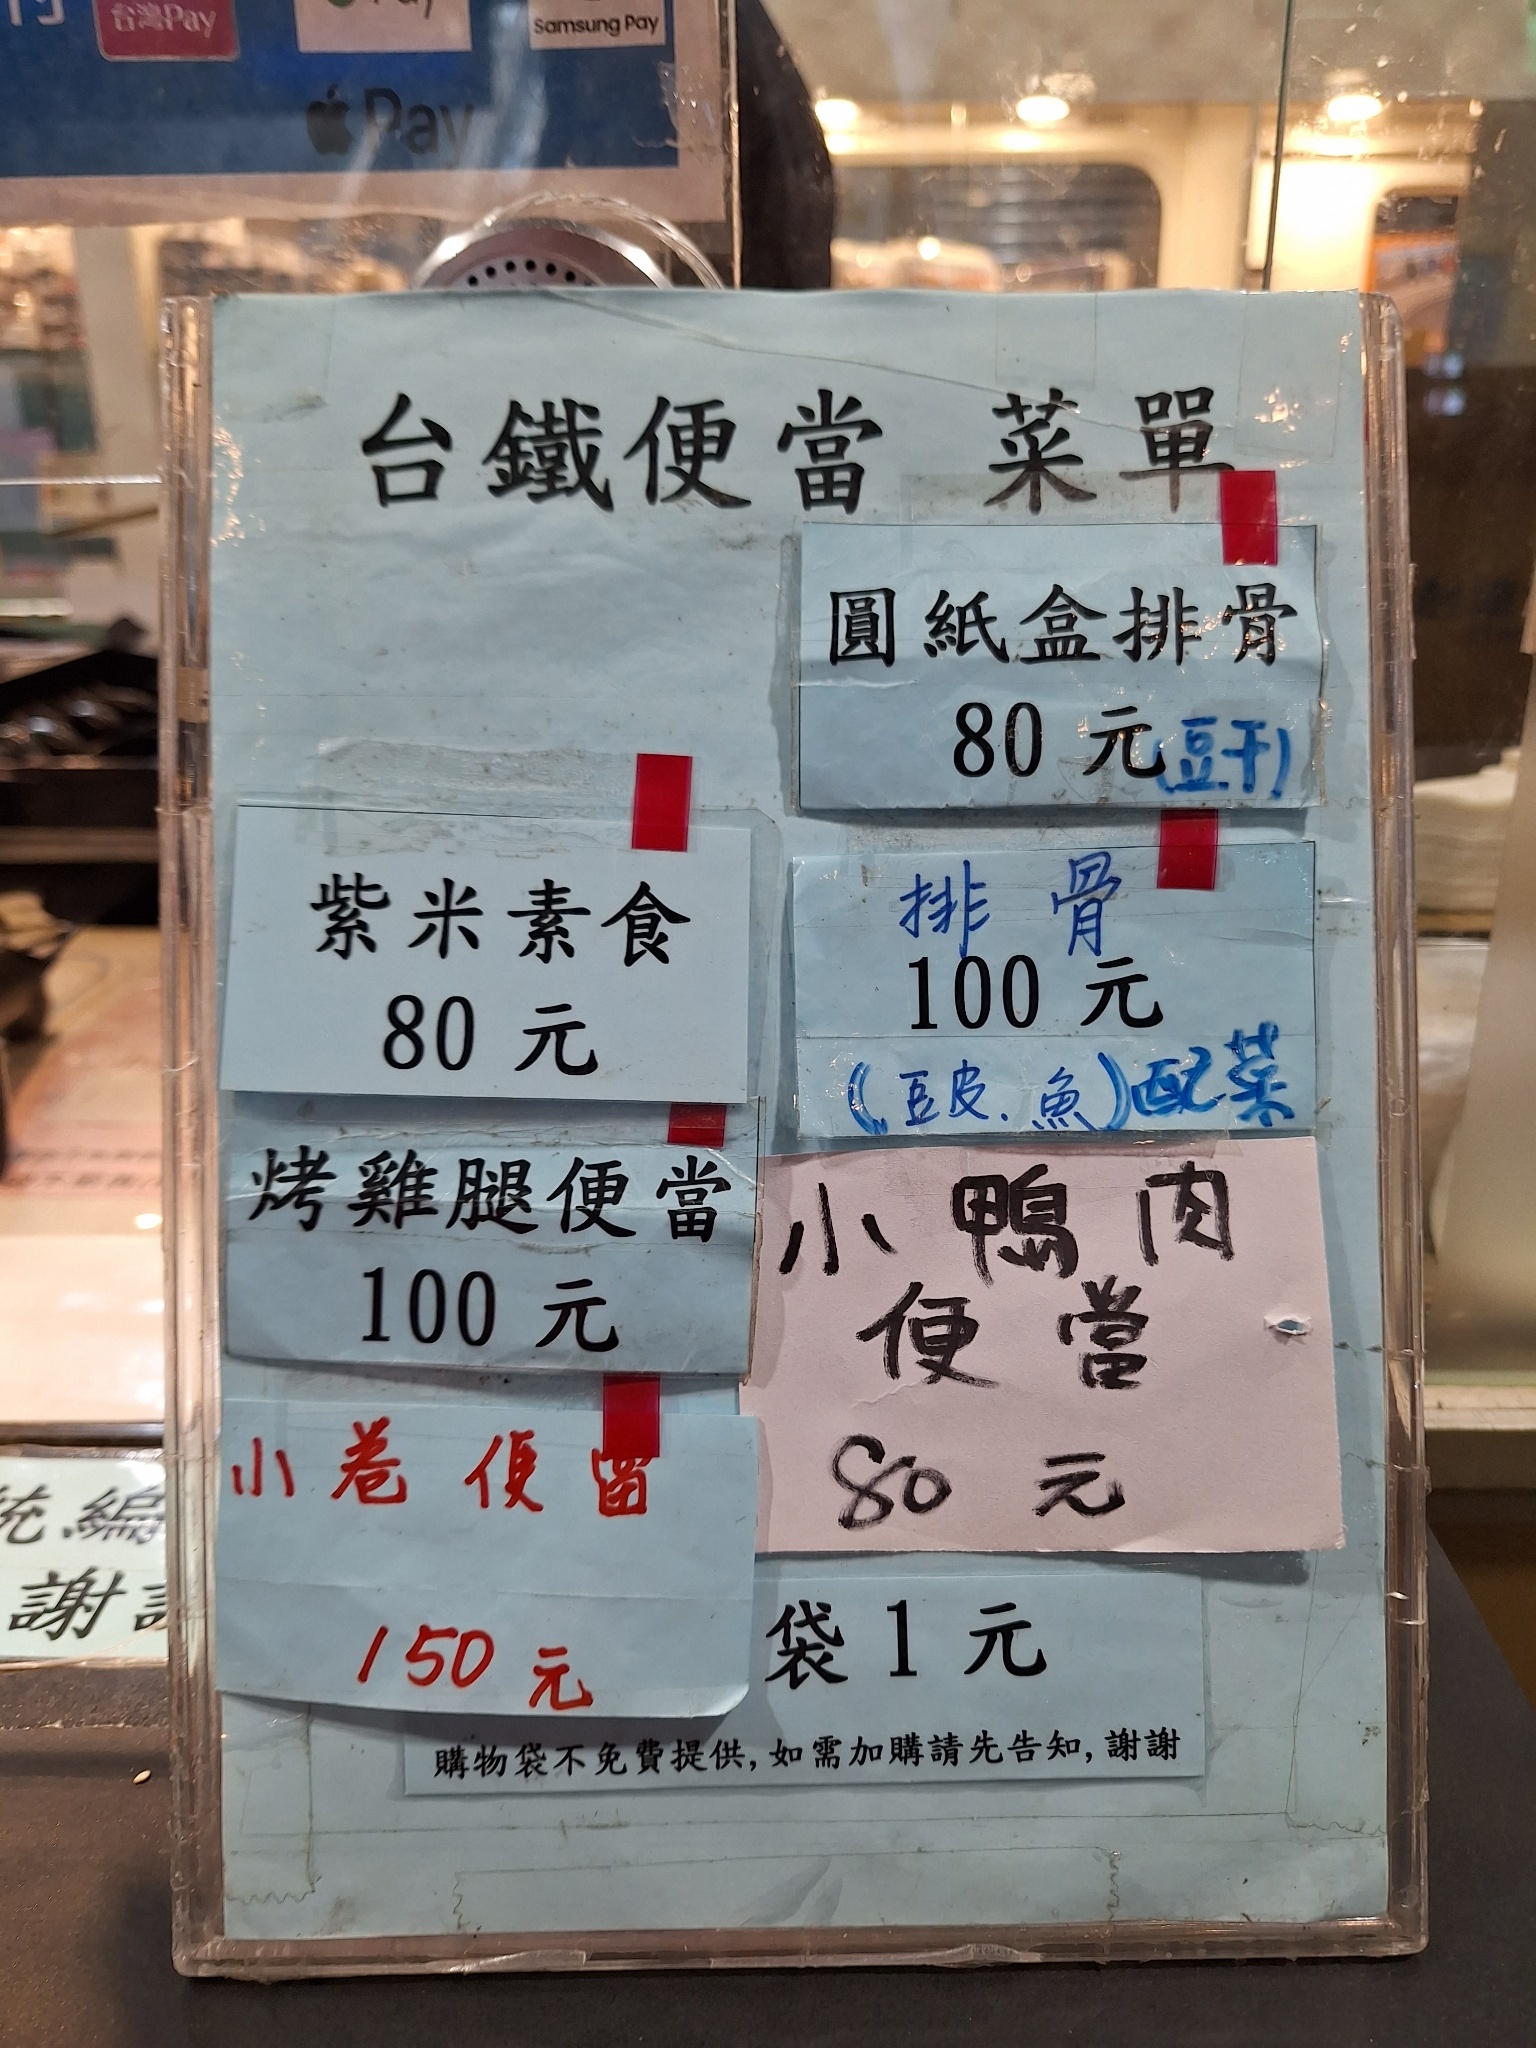 台灣Pay
Pay
Samsung Pay
Pay
台鐵便當 菜單
圓紙盒排骨
80 元(豆干)
排骨
100 元
(豆皮.魚)配菜
小鴨肉
便當
80 元
紫米素食
80 元
烤雞腿便當
100 元
小卷便當
150 元
袋 1 元
購物袋不免費提供,如需加購請先告知,謝謝
統編
謝